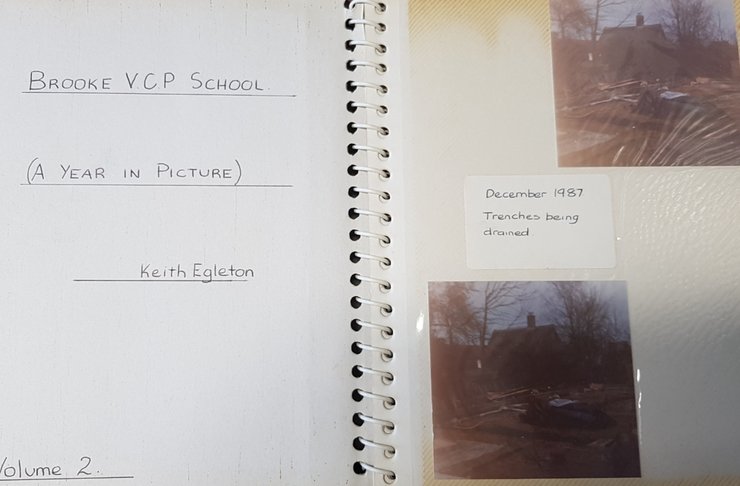 BROOKE V.C.P SCHOOL.
(A YEAR IN PICTURE)
Keith Egleton
Volume 2.
December 1987
Trenches being
drained.